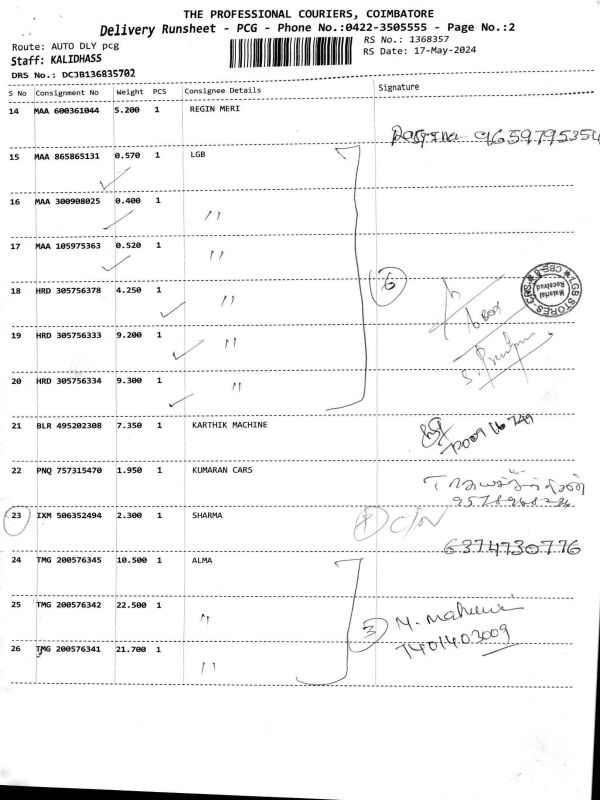 THE PROFESSIONAL COURIERS, COIMBATORE
Delivery Runsheet - PCG - Phone No.:0422-3505555 - Page No.:2
Route: AUTO DLY pcg
RS No.: 1368357
Staff: KALIDHASS
RS Date: 17-May-2024
DRS No.: DCJB136835702
S No Consignment No Weight PCS Consignee Details Signature
14 MAA 600361044 5.200 1 REGIN MERI
9659795354
15 MAA 865865131 0.570 1 LGB
16 MAA 300908025 0.400 1 "
17 MAA 105975363 0.520 1 "
18 HRD 305756378 4.250 1 "
6
LGB STORES-CRS CBE-6
Material Received
19 HRD 305756333 9.200 1 "
20 HRD 305756334 9.300 1 "
21 BLR 495202308 7.350 1 KARTHIK MACHINE
22 PNQ 757315470 1.950 1 KUMARAN CARS
23 IXM 506352494 2.300 1 SHARMA
6374730776
24 TMG 200576345 10.500 1 ALMA
25 TMG 200576342 22.500 1 "
3
7401403009
26 TMG 200576341 21.700 1 "